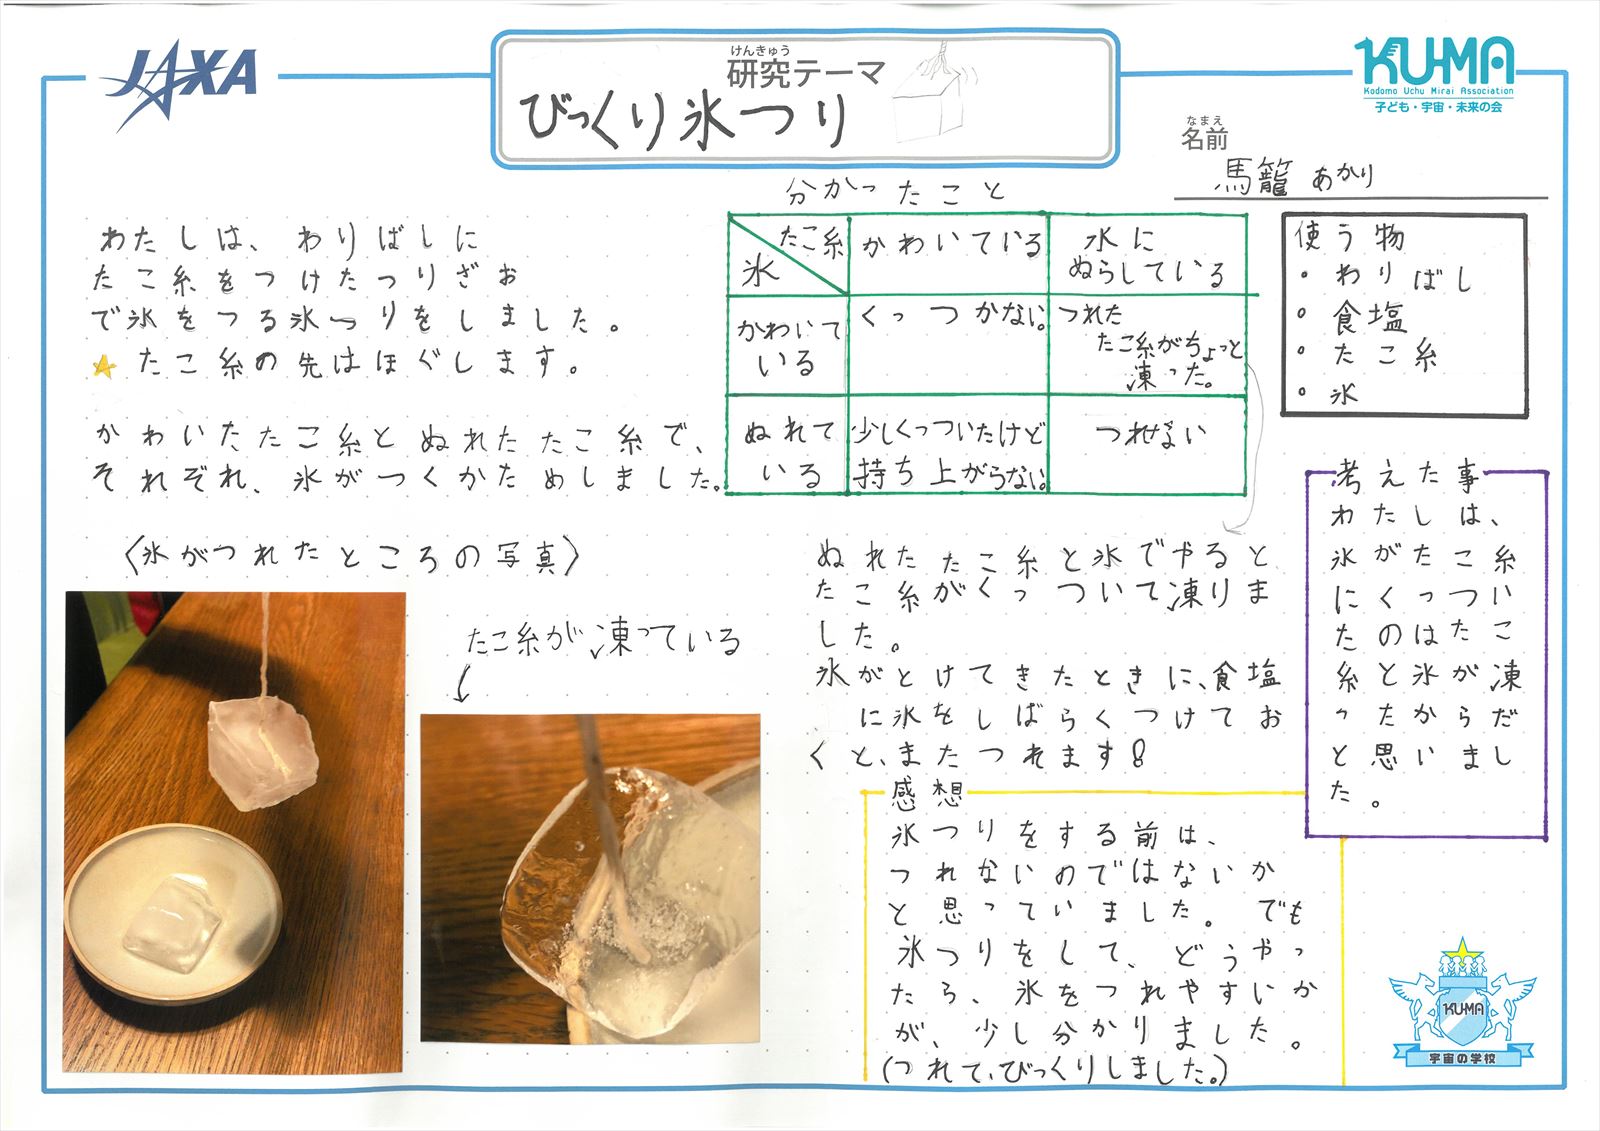 JAXA
けんきゅう
研究テーマ
びっくり氷つり
KU-MA
Kodomo Uchu Mirai Association
子ども・宇宙・未来の会
なまえ
名前
馬籠 あかり
わたしは、わりばしに
たこ糸をつけたつりざお
で氷をつる氷つりをしました。
★たこ糸の先はほぐします。
かわいたたこ糸とぬれたたこ糸で、
それぞれ、氷がつくかためしました。
分かったこと
たこ糸
氷
かわいている
水に
ぬらしている
かわいて
いる
くっつかない。
つれた
たこ糸がちょっと
凍った。
ぬれて
いる
少しくっついたけど
持ち上がらない。
つれない
使う物
・わりばし
・食塩
・たこ糸
・氷
〈氷がつれたところの写真〉
たこ糸が凍っている
ぬれたたこ糸と氷でやると
たこ糸がくっついて凍りま
した。
氷がとけてきたときに、食塩
に氷をしばらくつけてお
くと、またつれます!
考えた事
わたしは、
氷がたこ糸
にくっつい
たのはたこ
糸と氷が凍
ったからだ
と思いまし
た。
感想
氷つりをする前は、
つれないのではないか
と思っていました。でも
氷つりをして、どうやっ
たら、氷をつれやすいか
が、少し分かりました。
(つれて、びっくりしました。)
KUMA
宇宙の学校